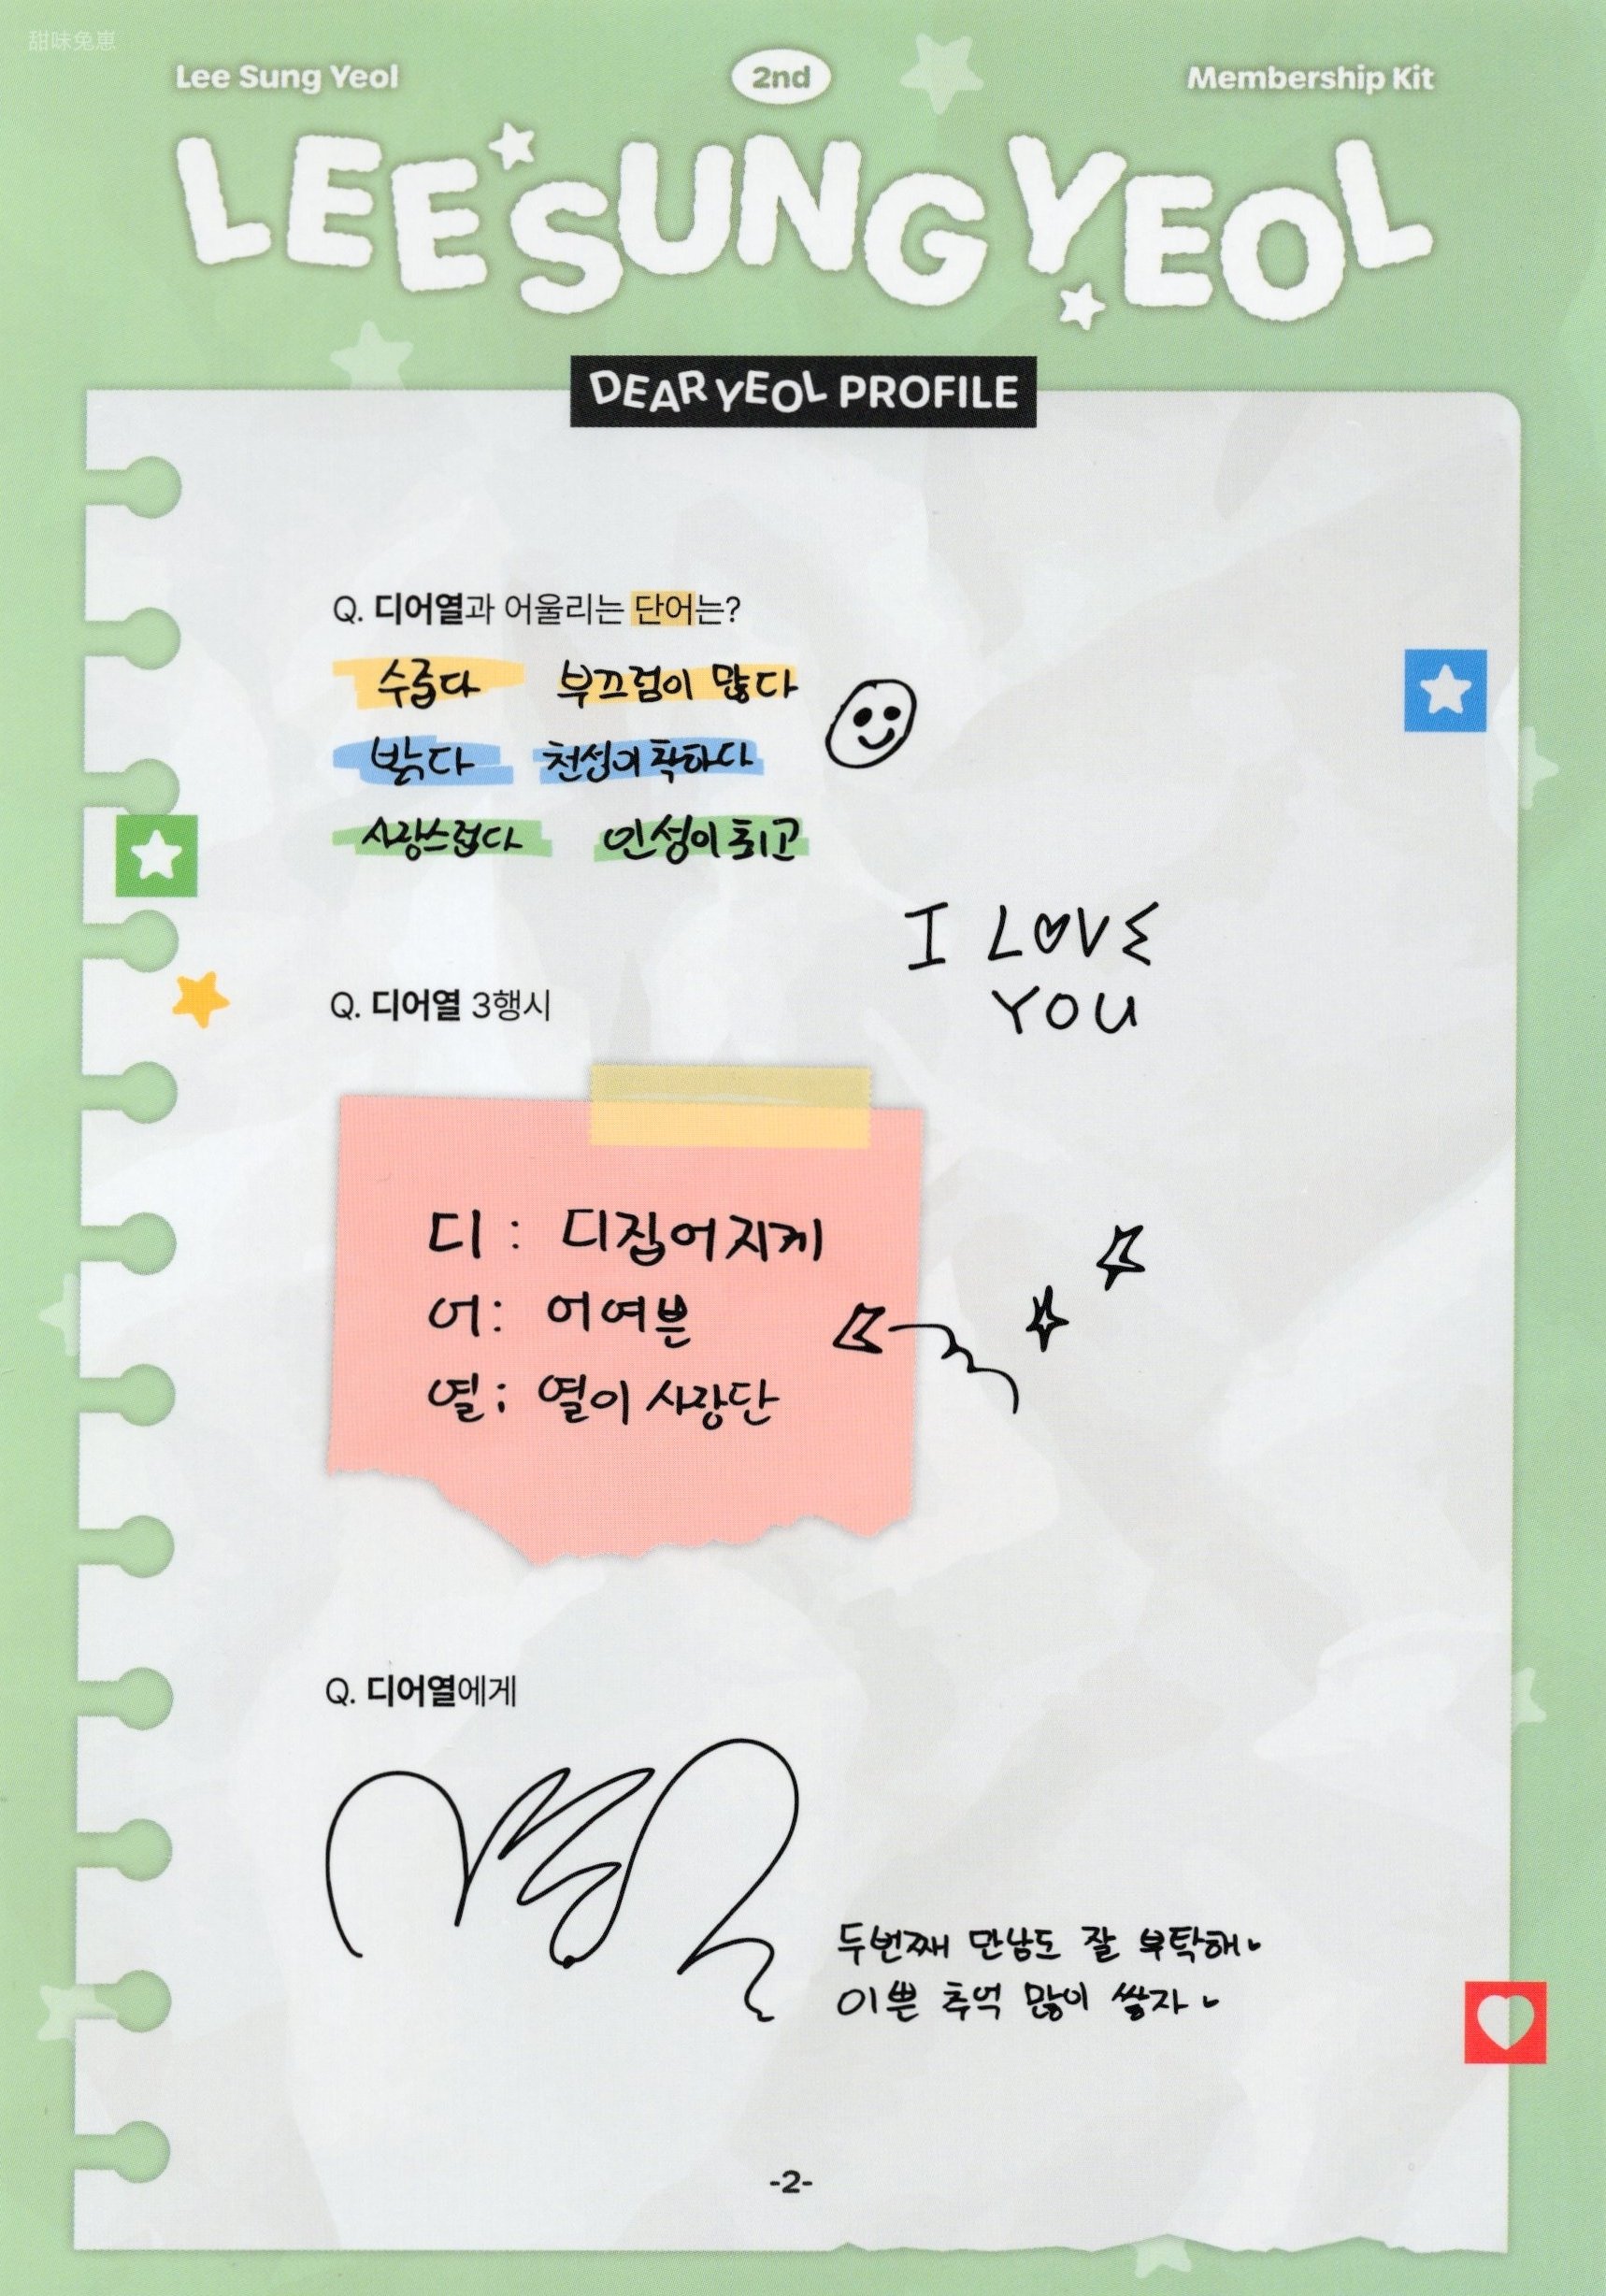 甜味兔崽
Lee Sung Yeol
2nd
Membership Kit
LEE SUNG YEOL
DEAR YEOL PROFILE
Q. 디어열과 어울리는 단어는?
수줍다 부끄럼이 많다
밝다 천성이 착하다
사랑스럽다 인성이 최고
I LOVE
YOU
Q. 디어열 3행시
디 : 디집어지게
어 : 어여쁜
열 ; 열이 사랑단
Q. 디어열에게
두번째 만남도 잘 부탁해
이쁜 추억 많이 쌓자
-2-